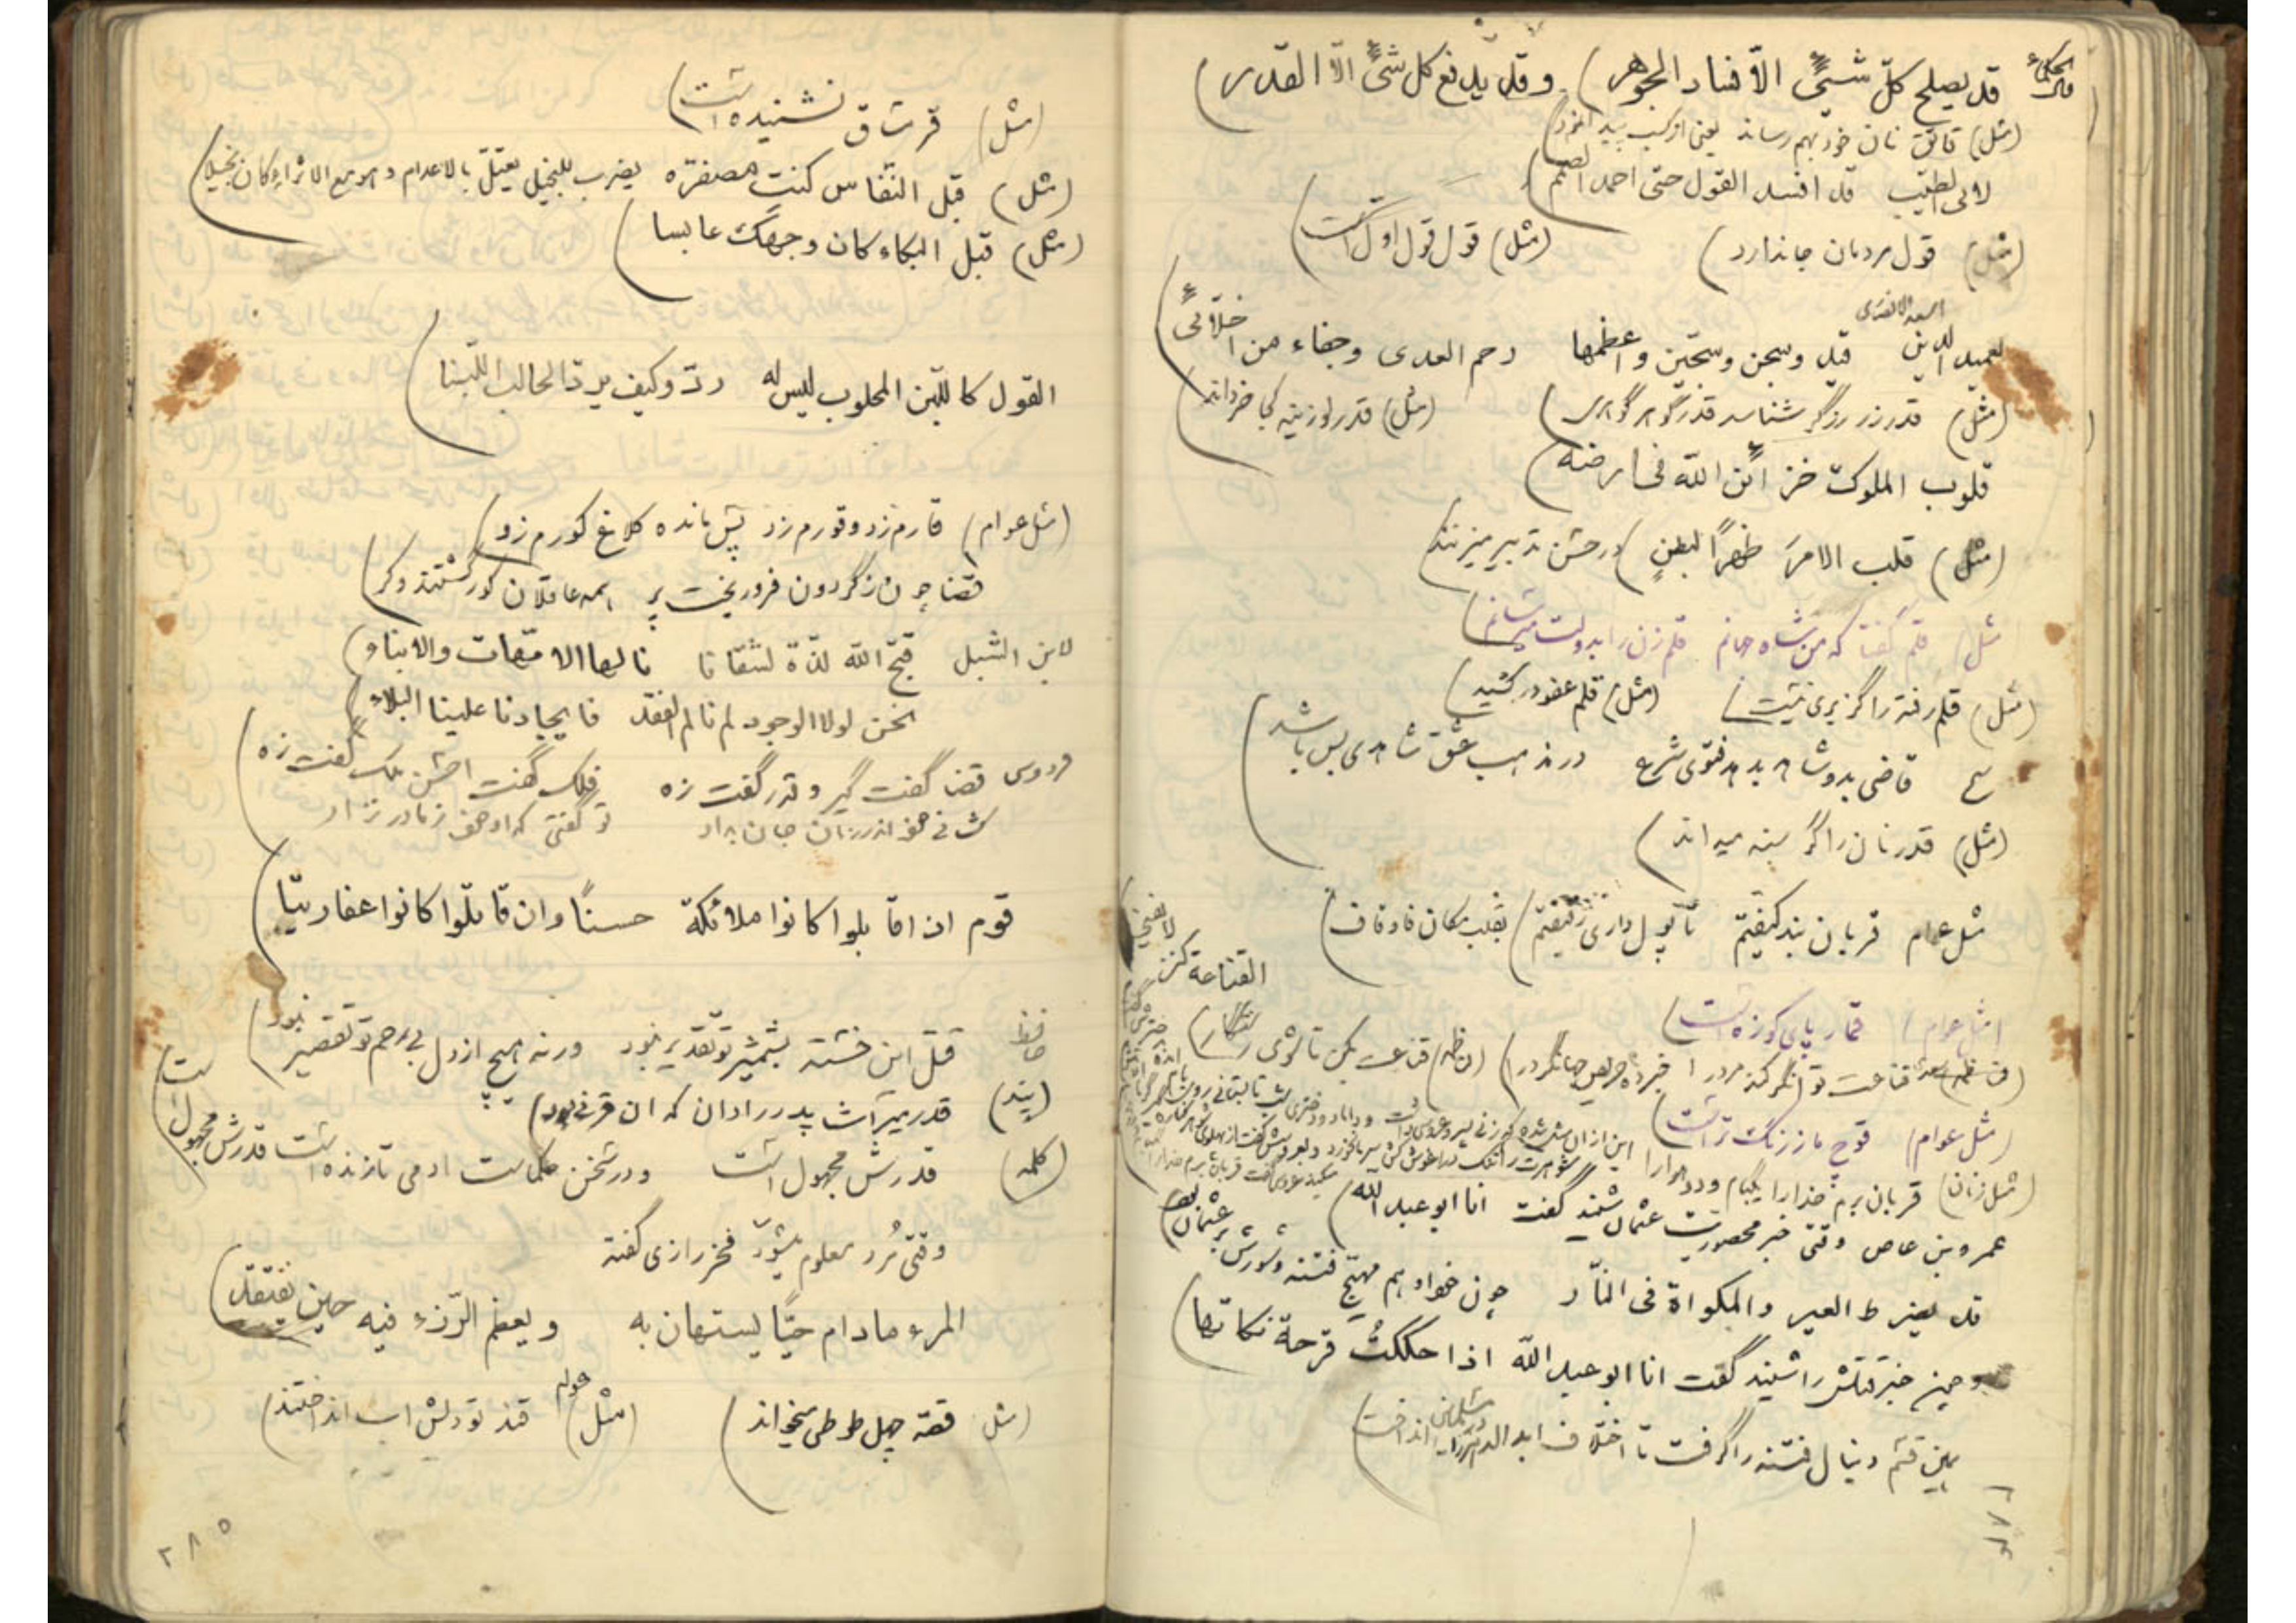 قد یصلح کلّ شیئٍ الّا فساد الجوهر) وقد یدفع کل شئٍ الّا القدر)
(مثل) قاتق نان خود بهم رساند یعنی از کسب
لابی الطیّب قد افسد القول حتی احمد الصمم)
(مثل) قول مردمان جاندارد) (مثل) قول قول اول است)
لعمید الدین اسعد قید وسجن وسجّین واعظمها رحم العدی وجفاء من اخلّائی)
(مثل) قدر زر زرگر شناسد قدر گوهر گوهری) (مثل) قدر لوزینه کجا خر داند)
قلوب الملوک خزائن اللّه فی ارضه)
(مثل) قلب الامرَ ظهراً لبطنٍ) در حسن تدبیر میزنند)
مثل) قلم گفتا که من شاه جهانم قلم زن را بدولت میرسانم)
(مثل) قلم رفته را گزیری نیست) (مثل) قلم عفو در کشید)
ع قاضی بدو شاهد بدهد فتوی شرع در مذهب عشق شاهدی بس باشد
(مثل) قدر نان را گرسنه میداند)
مثل عوام قربان بند کیفتم تا پول داری رفیقتم) بقلب مکان فا وقاف)
القناعة کنز لا یفنی
(مثل عوام) قمار پای کوزه است)
قناعت توانگر کند مرد را خبر ده حریص جهانگرد را) قناعت بکن تا شوی رستگار)
(مثل عوام) قوچ مازرنگ تر است)
(مثل زنان) قربان برم خدا را یکبام و دو هوا را
عمرو بن عاص وقتی خبر محصوریت عثمان شنید گفت انا ابو عبد اللّه)
قد یضرط العیر والمکواة فی النّار چون خواهم مهیّج فتنه و شورش بر عثمان
و چون خبر قتلش را شنید گفت انا ابو عبد اللّه اذا حککتُ قرحة نکاتها)
بهین قسم دنبال فتنه را گرفت تا اختلاف ابد الدهر در مسلمانان انداخت)
(مثل) قرشاق نشنیده است)
(مثل) قبل النفاس کنت مصفرّه یضرب للبخیل یعتلّ بالاعدام و هو مع الاثراء کان بخیلا)
(مثل) قبل البکاء کان وجهک عابسا)
القول کاللّبن المحلوب لیس له ردّ وکیف یردّ الحالب اللّبنا)
(مثل عوام) قارم زد و قورم زد پس مانده کلاغ کورم زد)
قضا چون ز گردون فرو ریخت پر همه عاقلان کور گشتند و کر)
لابن الشبل قبّح اللّه لذّة لشقانا نالها الامّهات والاباء)
نحن لولا الوجود لم نالم الفقد فایجادنا علینا البلاء)
فردوسی قضا گفت گیر و قدر گفت زه فلک گفت احسن ملک گفت زه
کشانی هم اندر زمان جان بداد تو گفتی که او خود ز مادر نزاد
قوم اذا قابلوا کانوا ملائکة حسناً وان قاتلوا کانوا عفاریتا)
حافظ قتل این خسته بشمشیر تو تقدیر نبود ورنه هیچ از دل بی رحم تو تقصیر نبود)
(پند) قدر میراث پدر را دان که ان قرنی بود)
(کلمه) قدرش مجهول است ودر سخن حکماست ادمی تا زنده است قدرش مجهول است
وقتی مُرد معلوم میشود فخر رازی گفته
المرء مادام حیّاً یستهان به ویعظم الرّزء فیه حین یفتقد)
(مثل قصّه چهل طوطی میخواند) (مثل) عوام قند تو دلش اب انداختند)
۲۸۵